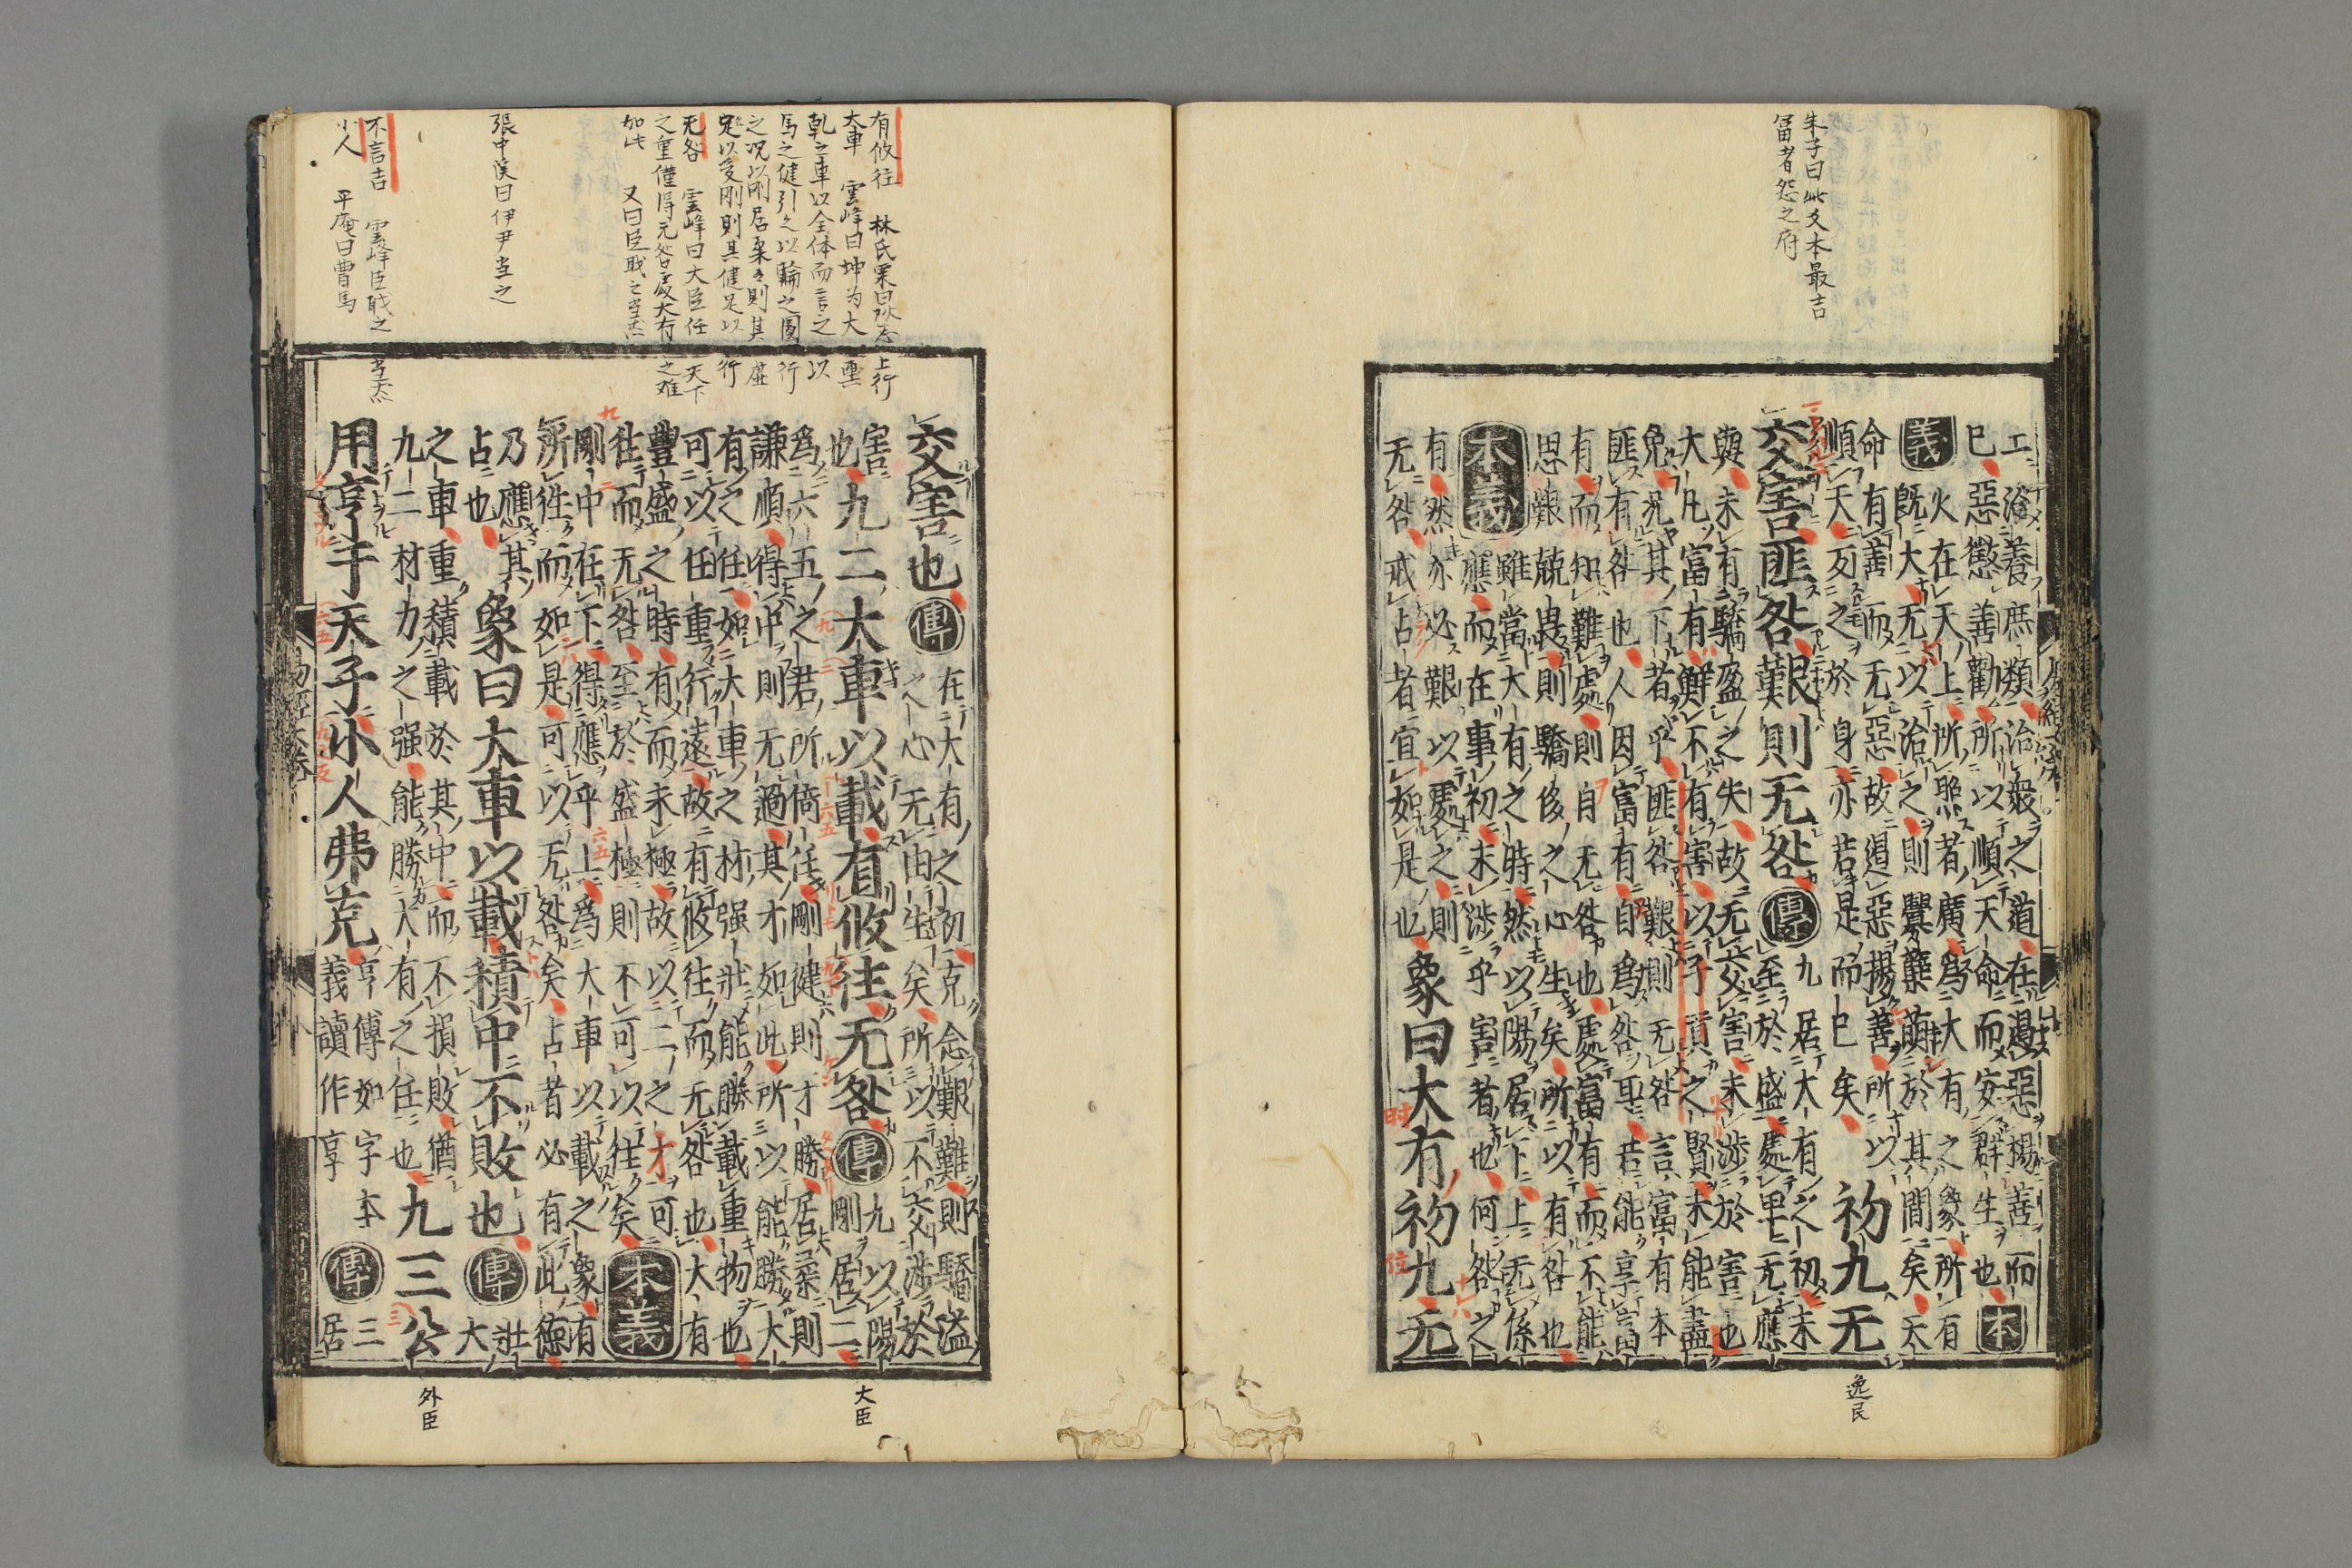 朱子曰此爻本最吉
富者怨之府
工治養庶類治衆之道在遏惡揚善而
已惡懲善勸所以順天命而安群生也本
義火在天上所照者廣爲大有之象所有
既大无以治之則釁蘖萌於其間矣天
命有善而无惡故遏惡揚善所以
順天反之於身亦若是而已矣初九无
交害匪咎艱則无咎傳九居大有之初未
至於盛處卑无應
與未有驕盈之失故无交害未涉於害也
大凡富有鮮不有害以子貢之賢未能盡
免況其下者乎匪咎艱則无咎言富有本
匪有咎也人因富有自爲咎耳若能享富
有而知難處則自无咎也處富有而不能
思艱兢畏則驕侈之心生矣所以有咎也
本義雖當大有之時然以陽居下上无係
應而在事初未涉乎害者也何咎之
有然亦必艱以處之則
无咎戒占者宜如是也象曰大有初九无
逸民
有攸往 林氏栗曰
大車 雲峰曰坤为大輿
乾之車以全体而言之以
馬之健引之以輪之圓行
之况以刚居柔則其虛
足以受刚則其健足以行
无咎 雲峰曰大臣任天下
之重僅得无咎處大有之难
如此 又曰臣職之当然
張中溪曰伊尹当之
不言吉 雲峰臣職之当然
小人 平庵曰曹馬
交害也傳在大有之初克念艱難則驕溢
之心无由生矣所以不交涉於
害
也九二大車以載有攸往无咎傳九以陽
剛居二
爲六五之君所倚任剛健則才勝居柔則
謙順得中則无過其才如此所以能勝大
有之任如大車之材强壯能勝載重物也
可以任重行遠故有攸往而无咎也大有
豐盛之時有而未極故以二之才可
往而无咎至於盛極則不可以往矣本義
剛中在下得應乎上爲大車以載之象有
所往而如是可以无咎矣占者必有此德
乃應其
占也象曰大車以載積中不敗也傳壯
大
之車重積載於其中而不損敗猶
九二材力之强能勝大有之任也九三公
用亨于天子小人弗克亨傳如字本
義讀作享傳三
居
大臣
外臣